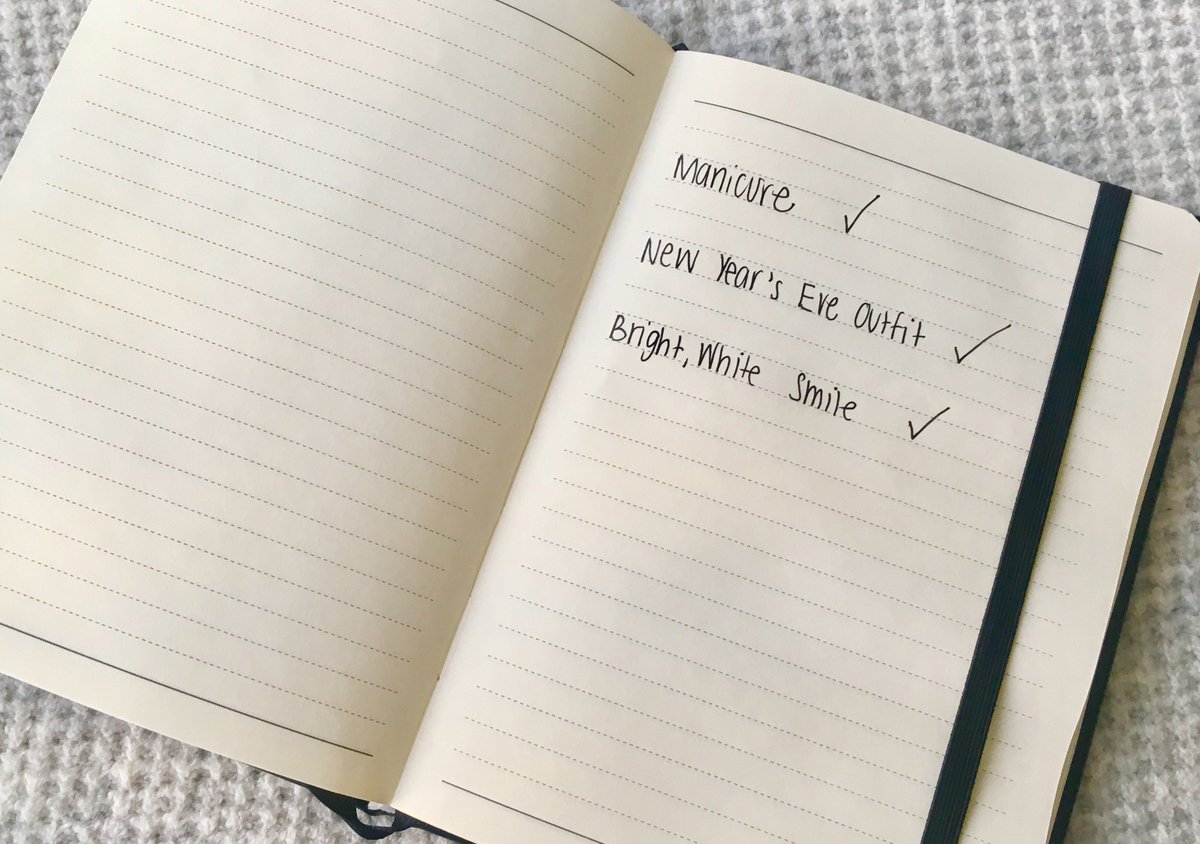 Manicure ✓
New Year's Eve Outfit ✓
Bright, White Smile ✓